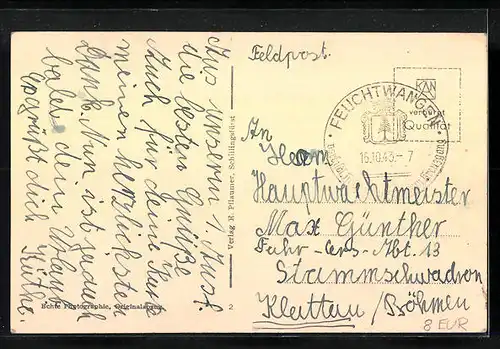 Aus unserm 1. Ausf.
die besten Grüße
Auch für deine Kart
meinen herzlichsten
Dank. Nun ist ja auch
bald dein Urlaub
Es grüßt dich
Käthe.
Echte Photographie, Originalaufn.
Verlag H. Pflaumer, Schillingsfürst
2
Feldpost.
FEUCHTWANGEN
16.10.43.- 7
verbürgt
Qualität
An
Herrn
Hauptwachtmeister
Max Günther
Fahr-Ers-Abt. 13
Stammschwadron
Klattau/Böhmen
8 EUR